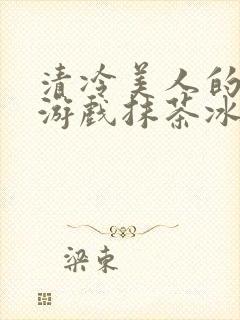 清冷美人的
游戏抹茶冰
梁東